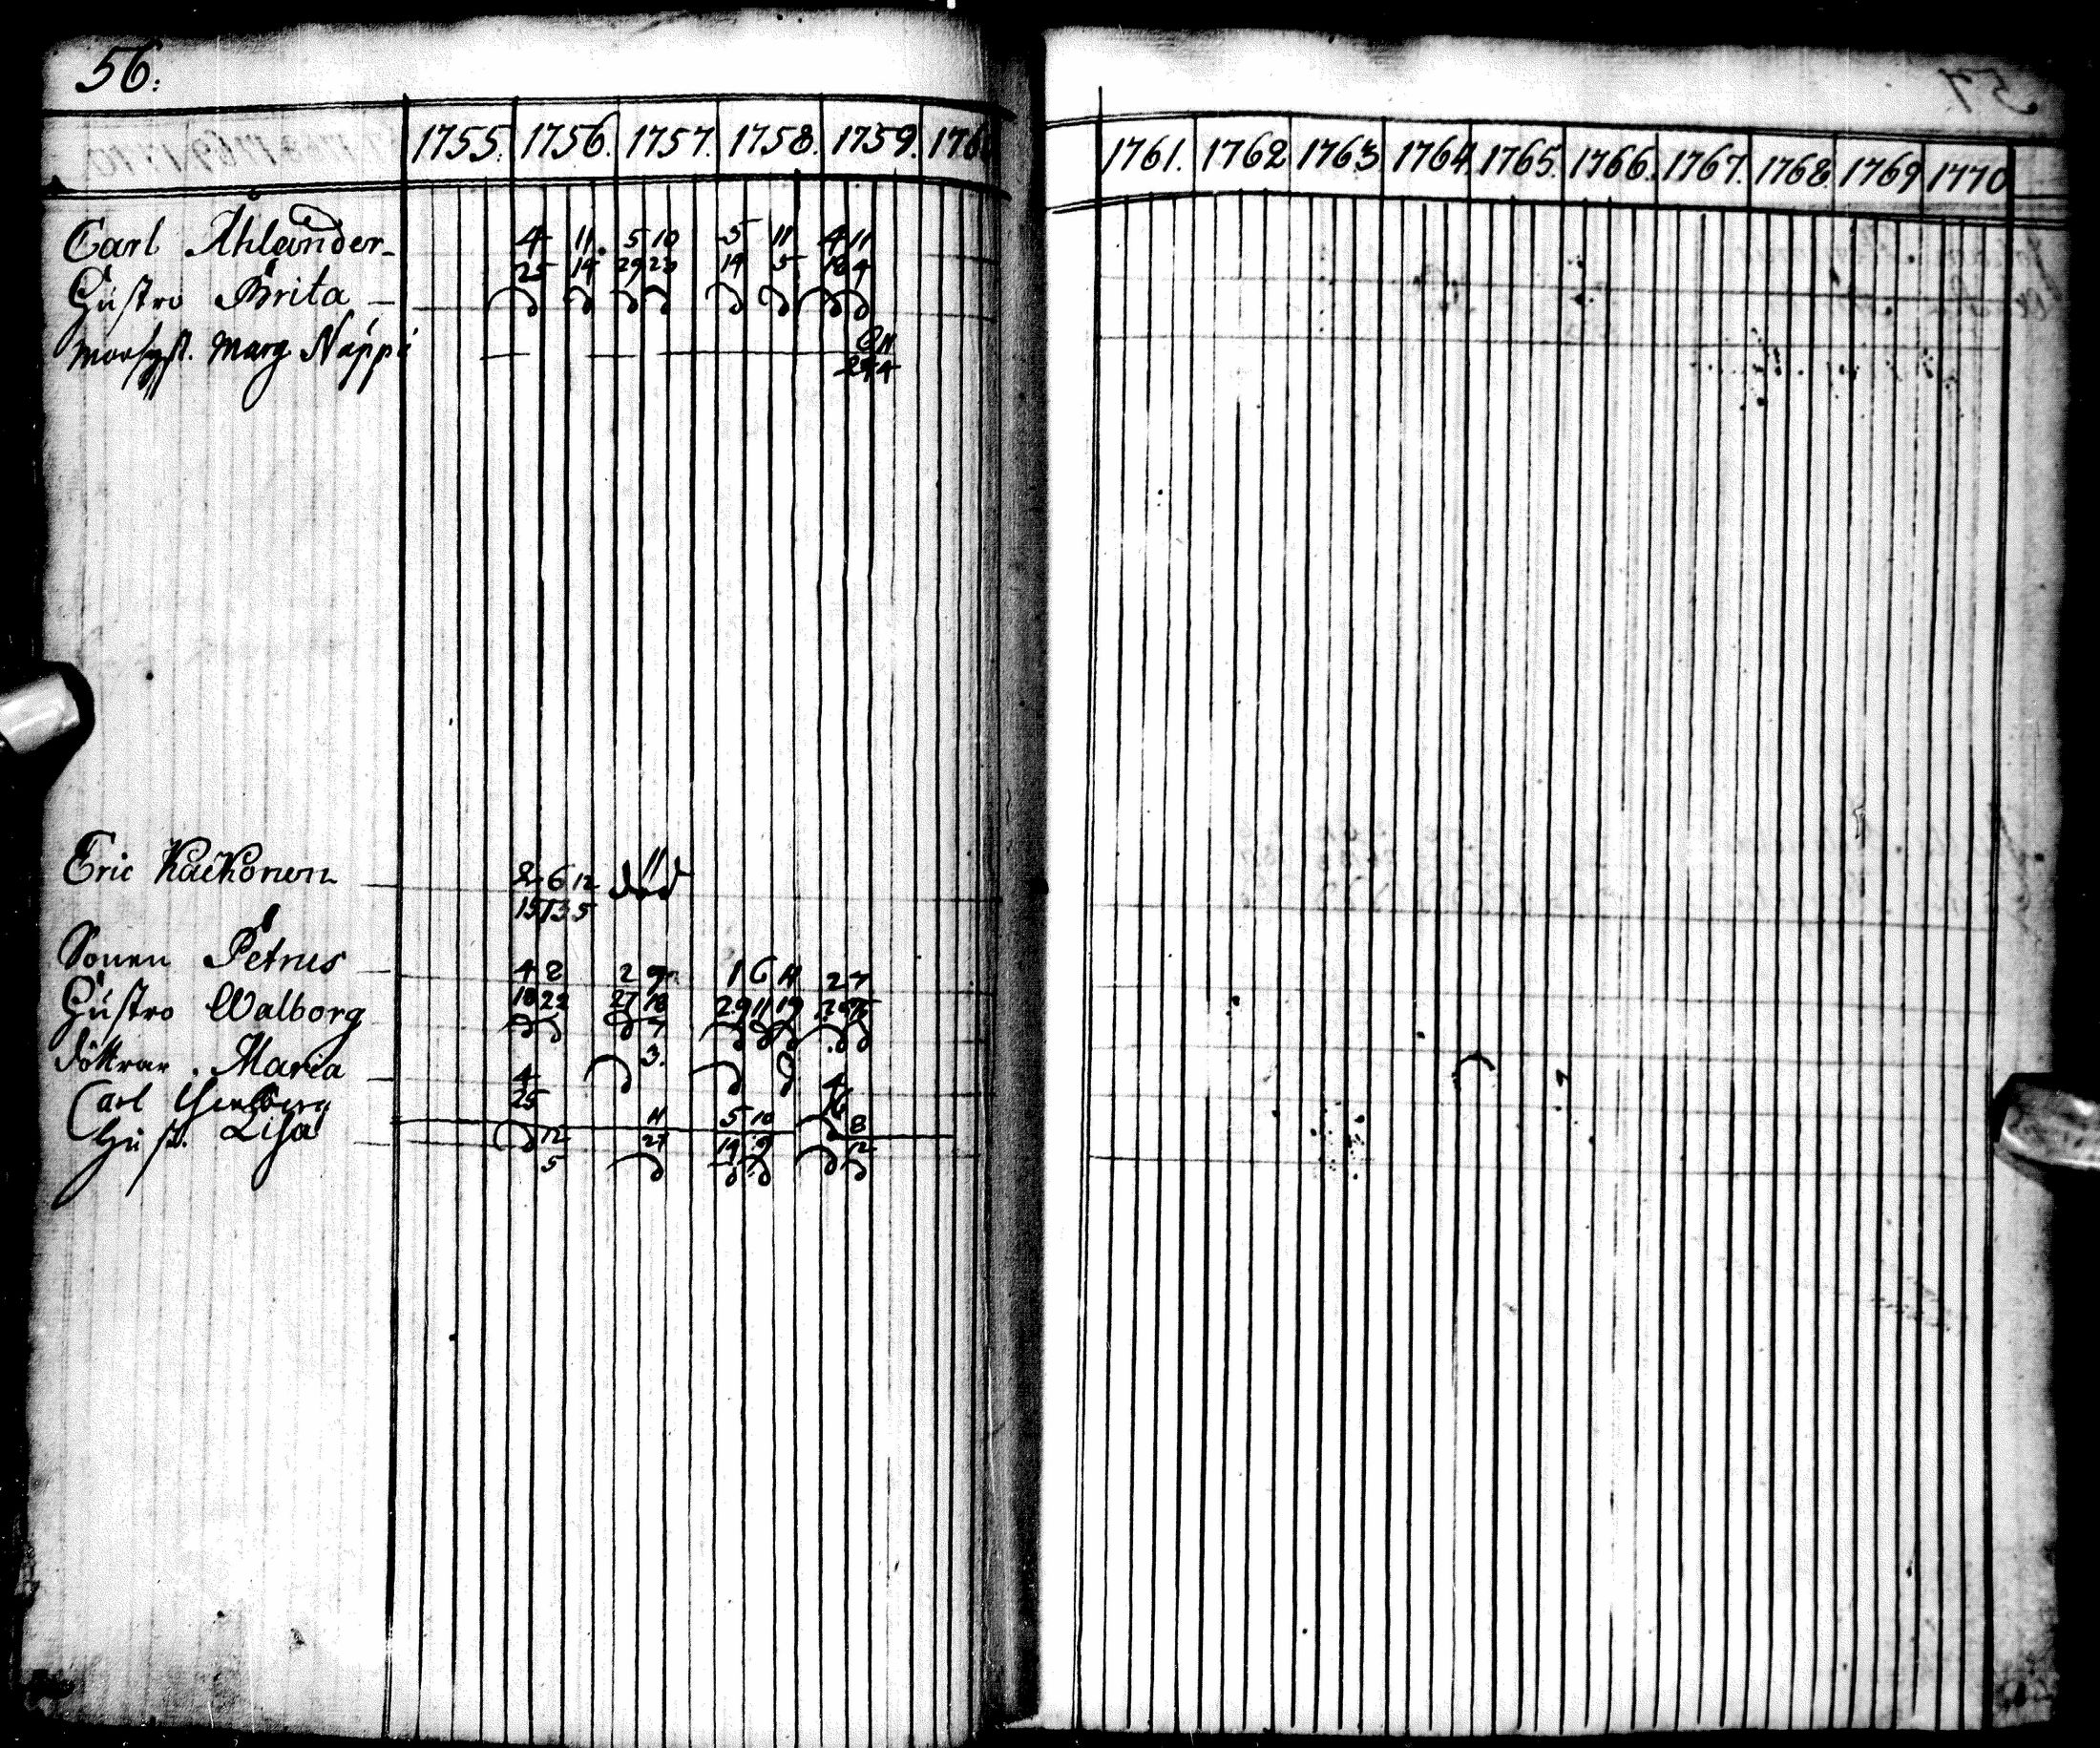 56.
1755. 1756. 1757. 1758. 1759. 176
1761. 1762 1763 1764 1765. 1766. 1767. 1768. 1769 1770
Carl Åhlander
4 11. 5 10 5 11 4 11
25 14 29 23 19 5 18 4
Hustro Brita
Marg Näppi
11
24 4
Eric Kaikonen
2 6 12 död
15 13 5
Sonen Petrus
4 8 2 9 1 6 11 2 7
18 22 27 18 29 11 19 29
Hustro Walborg
döttrar. Maria
3.
4 4
25 16
Carl
11 5 10 8
Hust. Lisa
12 27 19 9 12
5